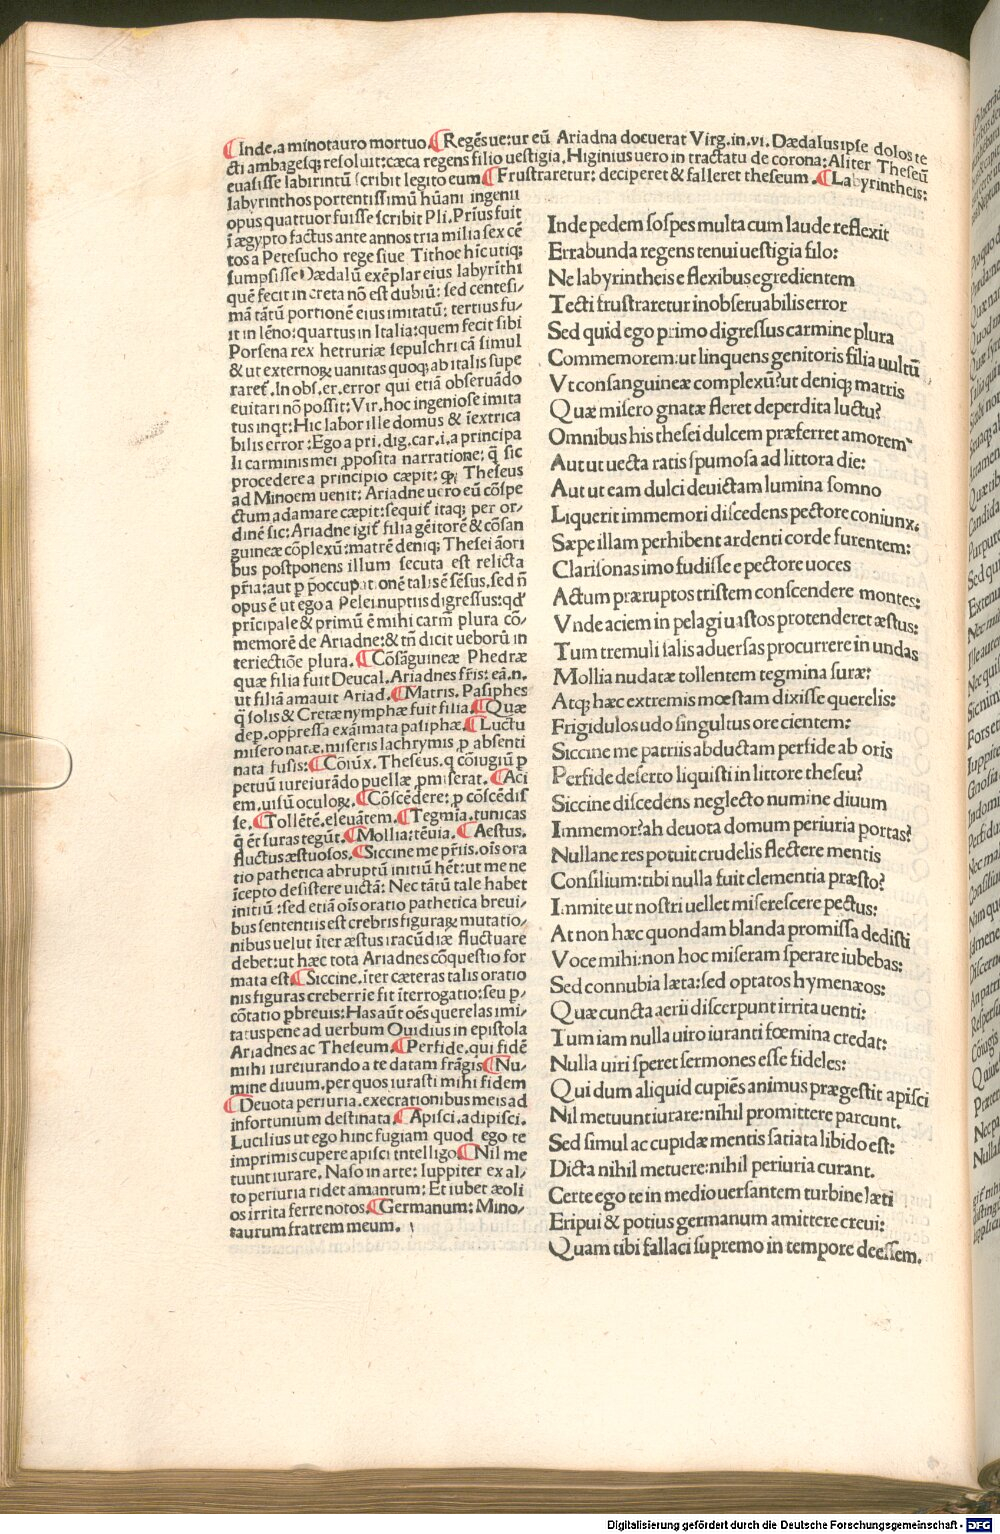 ¶Inde.a minotauro mortuo.¶Regēs ue:ut eū Ariadna docuerat Virg.in.vi. Dædalus ipſe dolos te
cti ambageſq; reſoluit:cæca regens filio ueſtigia, Higinius uero in tractatu de corona: Aliter Theſeū
euaſiſſe labirintū ſcribit legito eum¶Fruſtraretur: deciperet & falleret theſeum.¶Labyrintheis:
labyrinthos portentiſſimū hūani ingenii
opus quattuor fuiſſe ſcribit Pli. Prius fuit
ī ægypto factus ante annos tria milia ſex cē
tos a Peteſucho rege ſiue Tithoe hīc utiq;
ſumpſiſſe Dædalū exēplar eius labyrīthi
quē fecit in creta nō eſt dubiū: ſed centeſi/
mā tātū portionē eius imitatū: tertius fu/
it in lēno: quartus in Italia: quem fecit ſibi
Porſena rex hetruriæ ſepulchri cā ſimul
& ut externoꝝ uanitas quoq; ab italis ſupe
raret̄. In obſ.er.error qui etiā obſeruādo
euitari nō poſſit: Vir.hoc ingenioſe imita
tus inqt: Hic labor ille domus & īextrica
bilis error: Ego a pri.dig.car.i.a principa
li carminis mei ꝓpoſita narratione: q̄ ſic
procedere a principio cæpit: qꝫ Theſeus
ad Minoem uenit: Ariadne uero eū cōſpe
ctum adamare cæpit: ſequit̄ itaq; per or/
dinē ſic: Ariadne igit̄ filia gēitorē & cōſan
guineæ cōplexū: matrē deniq; Theſei āori
bus poſtponens illum ſecuta eſt relicta
pr̄ia: aut ꝑ p̄occupationē talis ē ſēſus. ſed n̄
opus ē ut ego a Pelei nuptiis digreſſus: qd'
prīcipale & primū ē mihi carm̄ plura cō/
memorē de Ariadne: & tn̄ dicit ueborū in
teriectiōe plura.¶Cōſāguineæ Phedræ
quæ filia fuit Deucal.Ariadnes fr̄is: eā.n.
ut filiā amauit Ariad.¶Matris. Paſiphes
q̄ ſolis & Cretæ nymphæ fuit filia.¶Quæ
dep.oppreſſa exāimata paſiphæ.¶Luctu
miſero natæ.miſeris lachrymis ꝓ abſenti
nata fuſis:¶Cōiūx.Theſeus.q cōiugiū ꝑ
petuū iureiurādo puellæ ꝓmiſerat.¶Aci
em.uiſū oculoꝝ.¶Cōſcēdere: ꝓ cōſcēdiſ
ſe.¶Tollētē.eleuātem.¶Tegmīa.tunicas
q̄ ēt ſuras tegūt.¶Mollia: tēuia.¶Aeſtus.
fluctus æſtuoſos.¶Siccine me pr̄iis.oīs ora
tio pathetica abruptū initiū hēt: ut me ne
īcepto deſiſtere uictā: Nec tātū tale habet
initiū: ſed etiā oīs oratio pathetica breui/
bus ſententiis eſt crebris figuraꝝ mutatio/
nibus uelut īter æſtus iracūdiæ fluctuare
debet: ut hæc tota Ariadnes cōqueſtio for
mata eſt.¶Siccine.īter cæteras talis oratio
nis figuras creberrie fit īterrogatio: ſeu ꝑ/
cōtatio ꝑbreuis: Has aūt oēs querelas imi/
tatus pene ad uerbum Ouidius in epiſtola
Ariadnes ac Theſeum.¶Perfide.qui fidē
mihi iureiurando a te datam frāgis¶Nu/
mine diuum.per quos iuraſti mihi fidem
¶Deuota periuria.execrationibus meis ad
infortunium deſtinata.¶Apiſci.adipiſci.
Lucilius ut ego hinc fugiam quod ego te
imprimis cupere apiſci intelligo¶Nil me
tuunt iurare. Naſo in arte: Iuppiter ex al/
to periuria ridet amantum: Et iubet æoli
os irrita ferre notos.¶Germanum: Mino/
taurum fratrem meum.
Inde pedem ſoſpes multa cum laude reflexit
Errabunda regens tenui ueſtigia filo:
Ne labyrintheis e flexibus egredientem
Tecti fruſtraretur inobſeruabilis error
Sed quid ego primo digreſſus carmine plura
Commemorem: ut linquens genitoris filia uultū
Vt conſanguineæ complexū? ut deniq; matris
Quæ miſero gnatæ fleret deperdita luctu?
Omnibus his theſei dulcem præferret amorem
Aut ut uecta ratis ſpumoſa ad littora die:
Aut ut eam dulci deuictam lumina ſomno
Liquerit immemori diſcedens pectore coniunx.
Sæpe illam perhibent ardenti corde furentem:
Clariſonas imo fudiſſe e pectore uoces
Actum præruptos triſtem conſcendere montes:
Vnde aciem in pelagi uaſtos protenderet æſtus:
Tum tremuli ſalis aduerſas procurrere in undas
Mollia nudatæ tollentem tegmina ſuræ:
Atq; hæc extremis mœſtam dixiſſe querelis:
Frigidulos udo ſingultus ore cientem:
Siccine me patriis abductam perfide ab oris
Perfide deſerto liquiſti in littore theſeu?
Siccine diſcedens neglecto numine diuum
Immemor? ah deuota domum periuria portas?
Nullane res potuit crudelis flectere mentis
Conſilium: tibi nulla fuit clementia præſto?
Inmite ut noſtri uellet miſereſcere pectus:
At non hæc quondam blanda promiſſa dediſti
Voce mihi: non hoc miſeram ſperare iubebas:
Sed connubia læta: ſed optatos hymenæos:
Quæ cuncta aerii diſcerpunt irrita uenti:
Tum iam nulla uiro iuranti fœmina credat:
Nulla uiri ſperet ſermones eſſe fideles:
Qui dum aliquid cupiēs animus prægeſtit apiſci
Nil metuunt iurare: nihil promittere parcunt.
Sed ſimul ac cupidæ mentis ſatiata libido eſt:
Dicta nihil metuere: nihil periuria curant.
Certe ego te in medio uerſantem turbine læti
Eripui & potius germanum amittere creui:
Quam tibi fallaci ſupremo in tempore deeſſem.
Digitalisierung gefördert durch die Deutsche Forschungsgemeinschaft - DFG